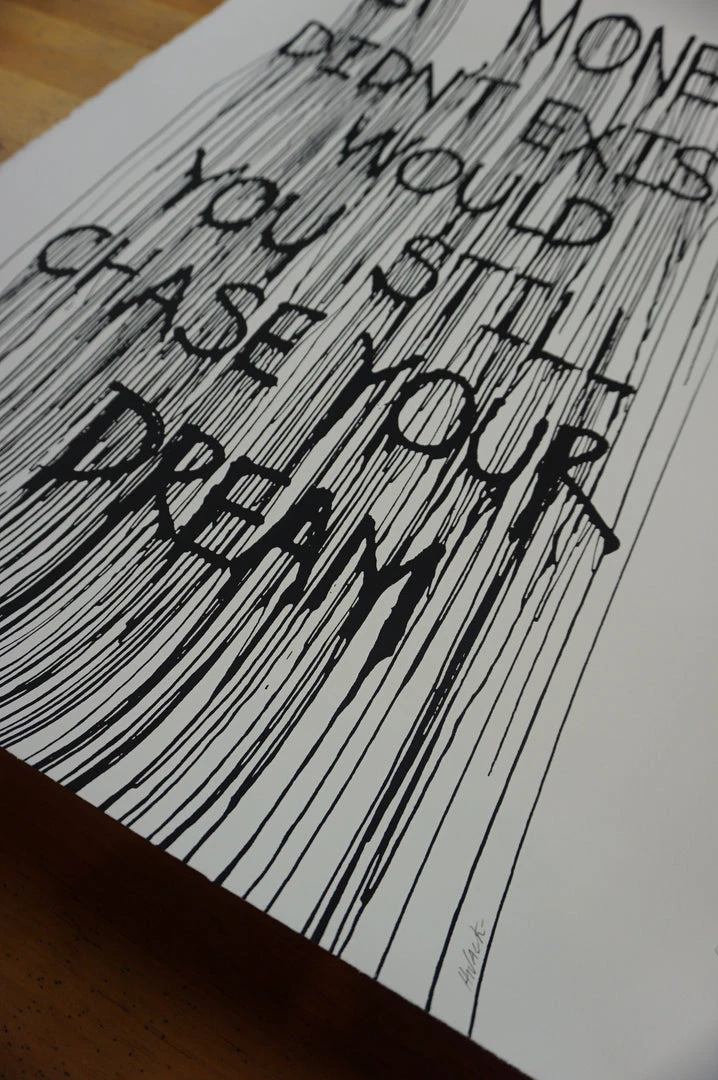 MONE
DIDNT EXIS
WOULD
YOU STILL
CHASE YOUR
DREAM
HiJack